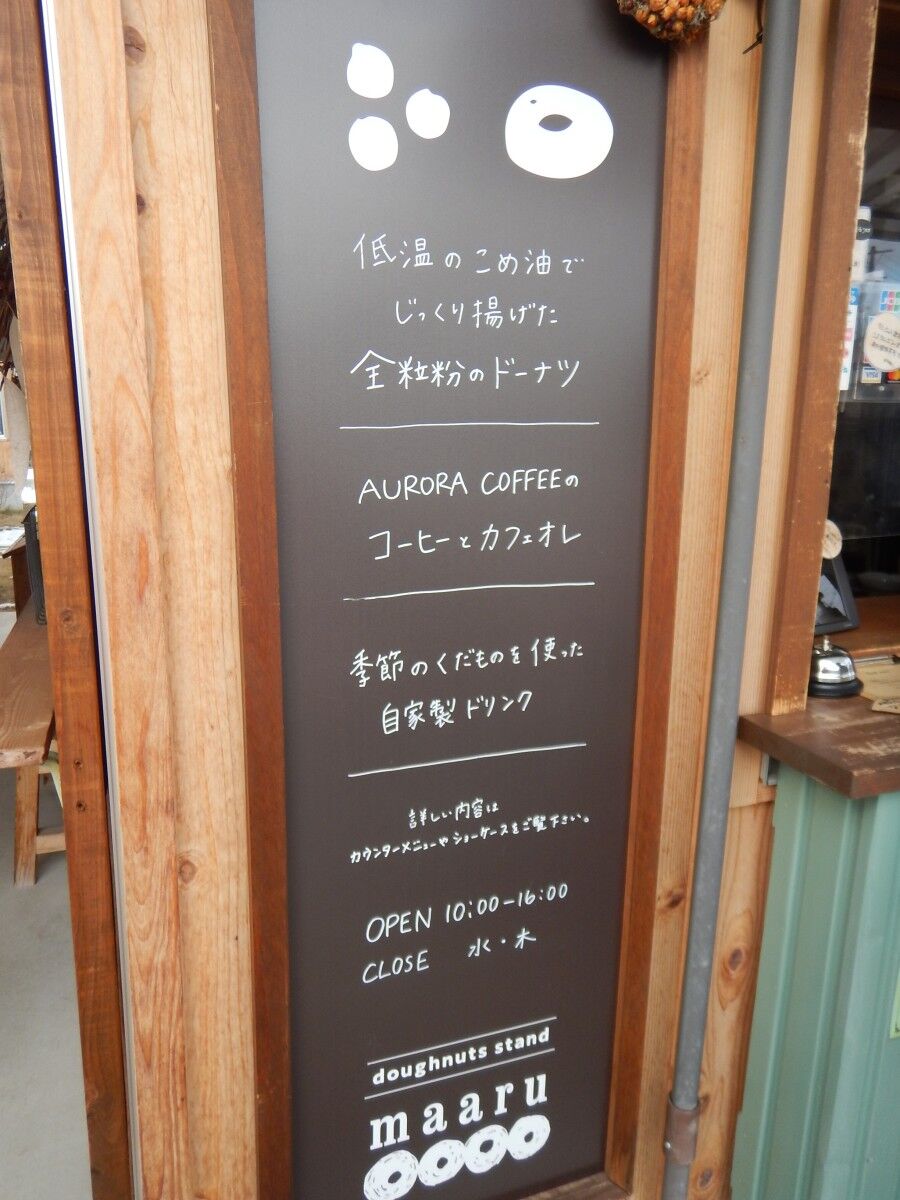 低温のこめ油で
じっくり揚げた
全粒粉のドーナツ
AURORA COFFEEの
コーヒーとカフェオレ
季節のくだものを使った
自家製ドリンク
詳しい内容は
カウンターメニューやショーケースをご覧下さい。
OPEN 10:00-16:00
CLOSE 水・木
doughnuts stand
maaru